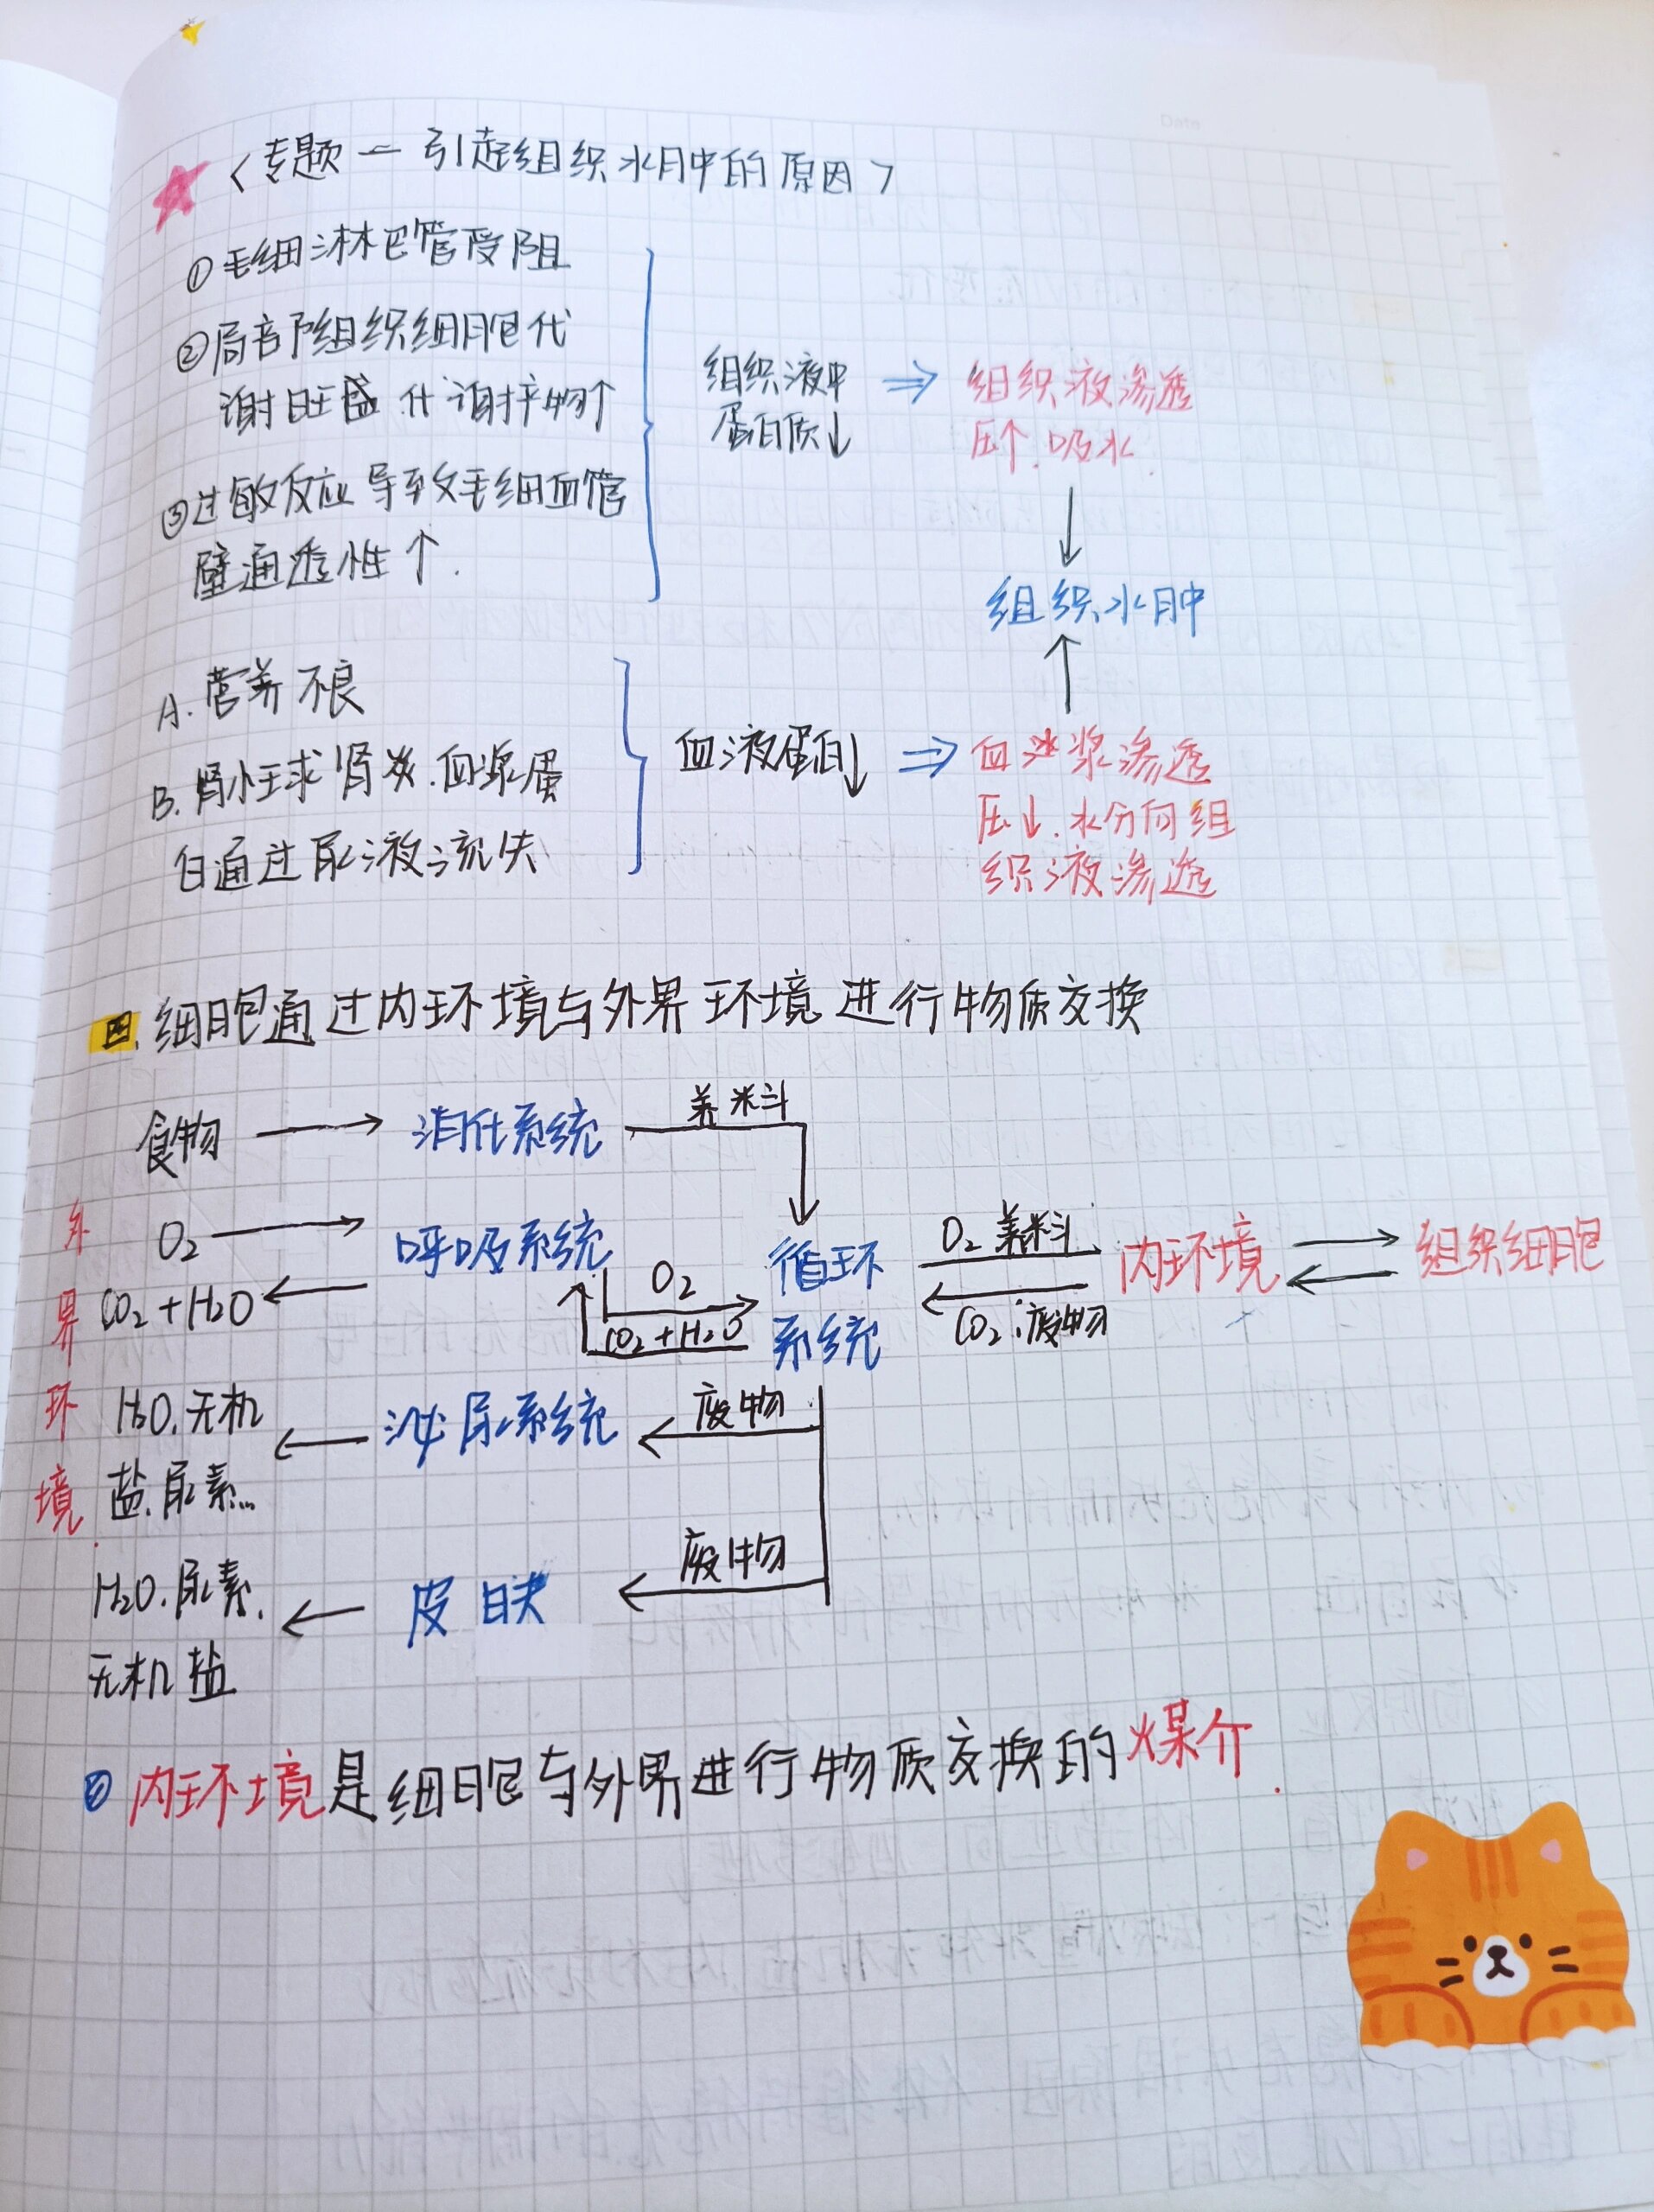 Date
<专题一 引起组织水肿的原因>
①毛细淋巴管受阻
②局部组织细胞代
谢旺盛.代谢产物↑
③过敏反应导致毛细血管
壁通透性↑.
组织液中
蛋白质↓
⇒
组织液渗透
压↑.吸水.
组织水肿
A.营养不良
B.肾小球肾炎.血浆蛋
白通过尿液流失
血液蛋白↓
⇒
血浆渗透
压↓.水分向组
织液渗透
四.细胞通过内环境与外界环境进行物质交换
外界环境.
食物 → 消化系统 养料
O₂ → 呼吸系统
CO₂+H₂O ←
O₂
CO₂+H₂O
循环
系统
O₂ 养料
CO₂.废物
内环境
组织细胞
H₂O.无机
盐.尿素...
← 泌尿系统 ← 废物
H₂O.尿素.
无机盐
← 皮肤 ← 废物
内环境是细胞与外界进行物质交换的媒介.